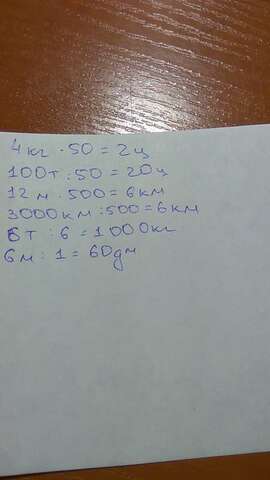 4кг · 50 = 2ц
100т : 50 = 20ц
12м · 500 = 6км
3000км : 500 = 6км
6т : 6 = 1000кг
6м : 1 = 60дм